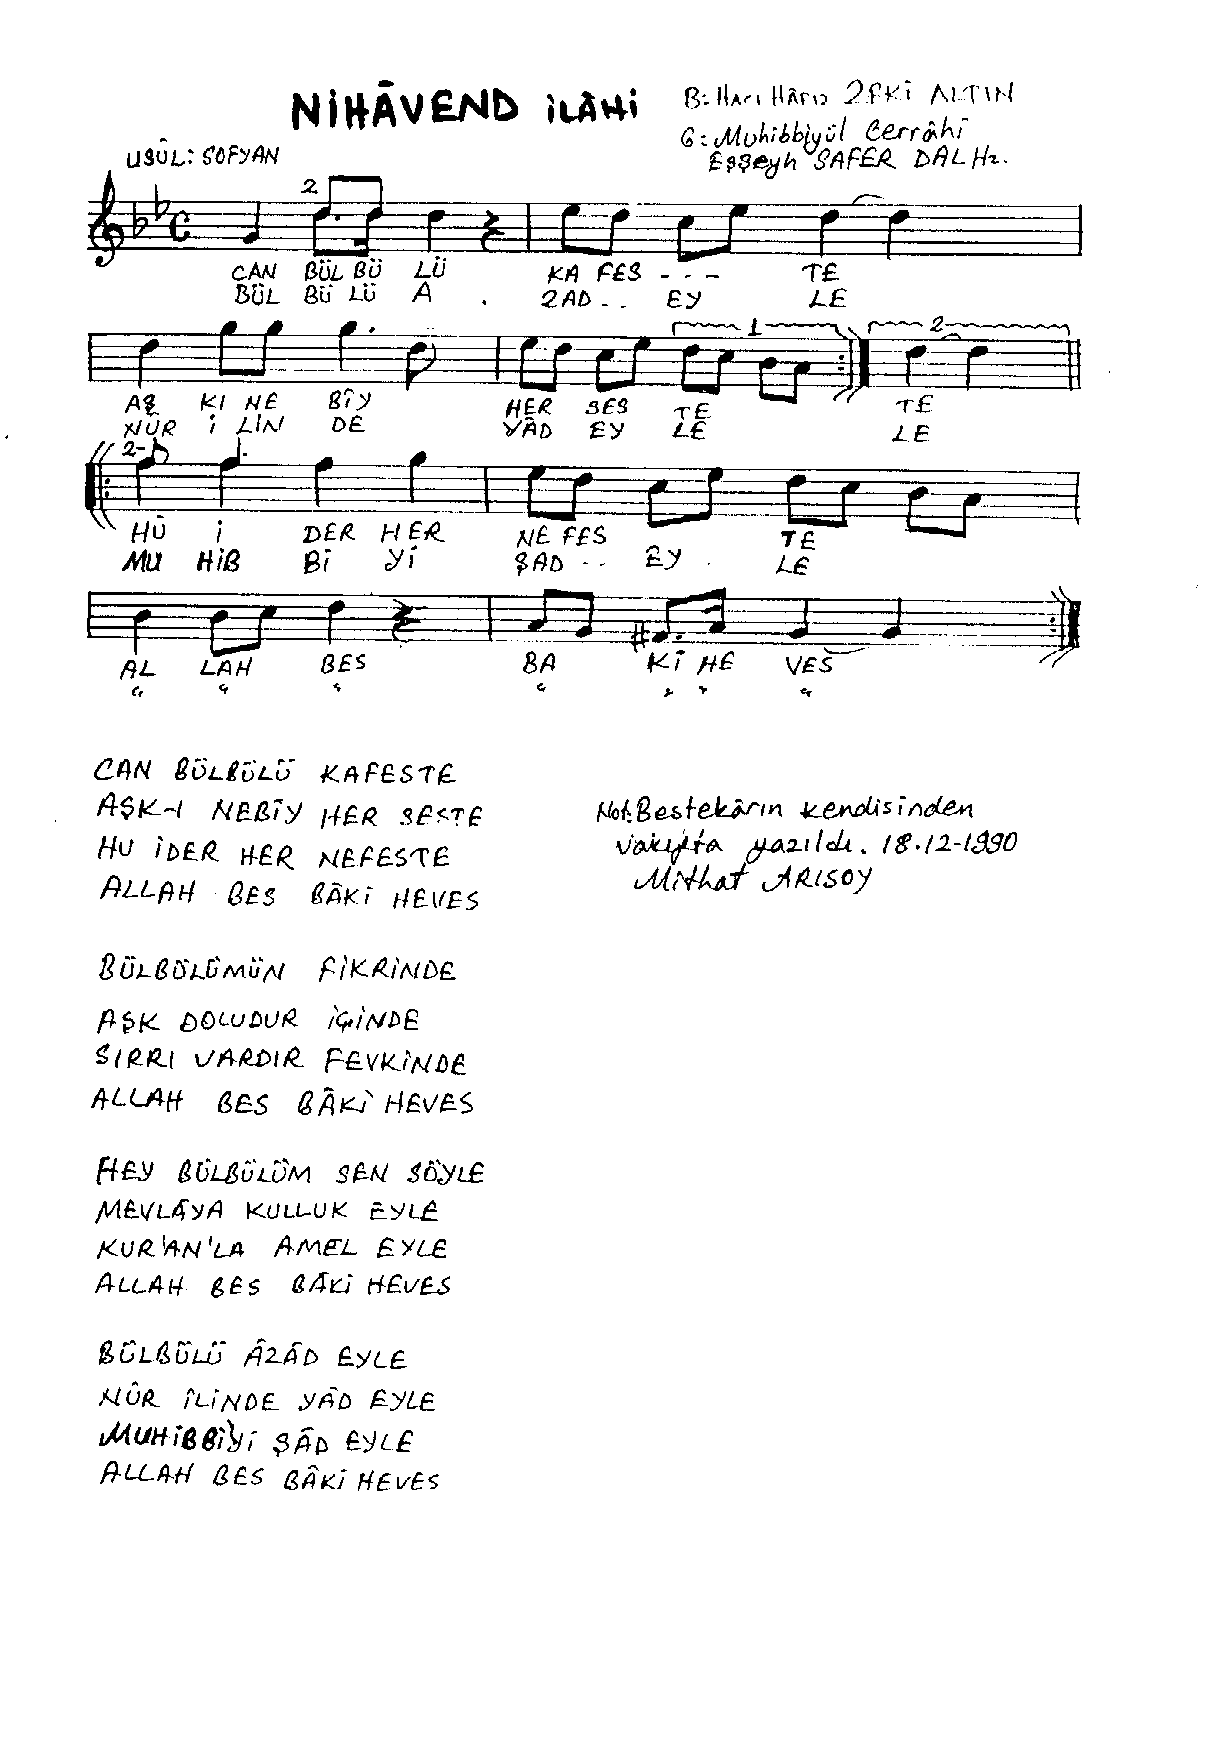 NİHÂVEND İLÂHİ
B: HACI HÂFIZ ZEKİ ALTIN
G: Muhibbiyül Cerrâhî
EŞŞeyh SAFER DAL Hz.
USÛL: SOFYAN
2
CAN BÜL BÜ LÜ KA FES - - - TE
BÜL BÜ LÜ A . ZAD - - EY LE
1 2
AŞ KI NE BÎY HER SES TE TE
NÛR İ LİN DE YÂD EY LE LE
2-
HÛ İ DER HER NE FES TE
MU HİB Bİ Yİ ŞAD - - EY . LE
AL LAH BES BA KÎ HE VES
" " " " " " "
CAN BÜLBÜLÜ KAFESTE
AŞK-I NEBÎY HER SESTE
HU İDER HER NEFESTE
ALLAH BES BÂKİ HEVES
Not: Bestekârın kendisinden
vakıfta yazıldı. 18.12-1990
Mithat ARISOY
BÜLBÜLÜMÜN FİKRİNDE
AŞK DOLUDUR İÇİNDE
SIRRI VARDIR FEVKİNDE
ALLAH BES BÂKİ HEVES
HEY BÜLBÜLÜM SEN SÖYLE
MEVLÂYA KULLUK EYLE
KUR'AN'LA AMEL EYLE
ALLAH BES BÂKİ HEVES
BÜLBÜLÜ ÂZÂD EYLE
NÛR ÎLİNDE YÂD EYLE
MUHİBBİYİ ŞÂD EYLE
ALLAH BES BÂKİ HEVES